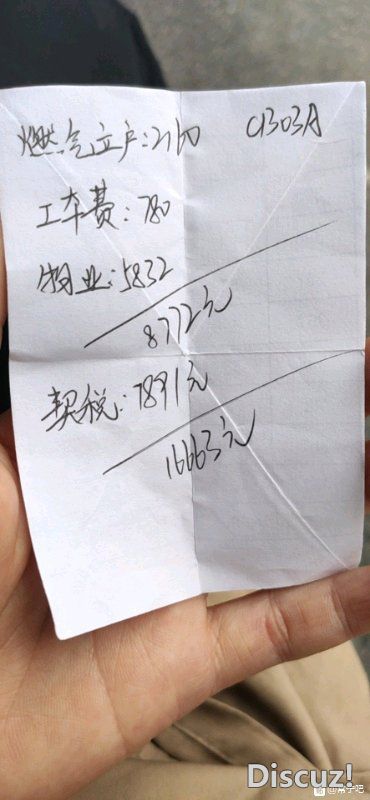 燃气立户:2160 C1303A
工本费:780
物业:5832
8772元
契税:7891元
16663元
Discuz!